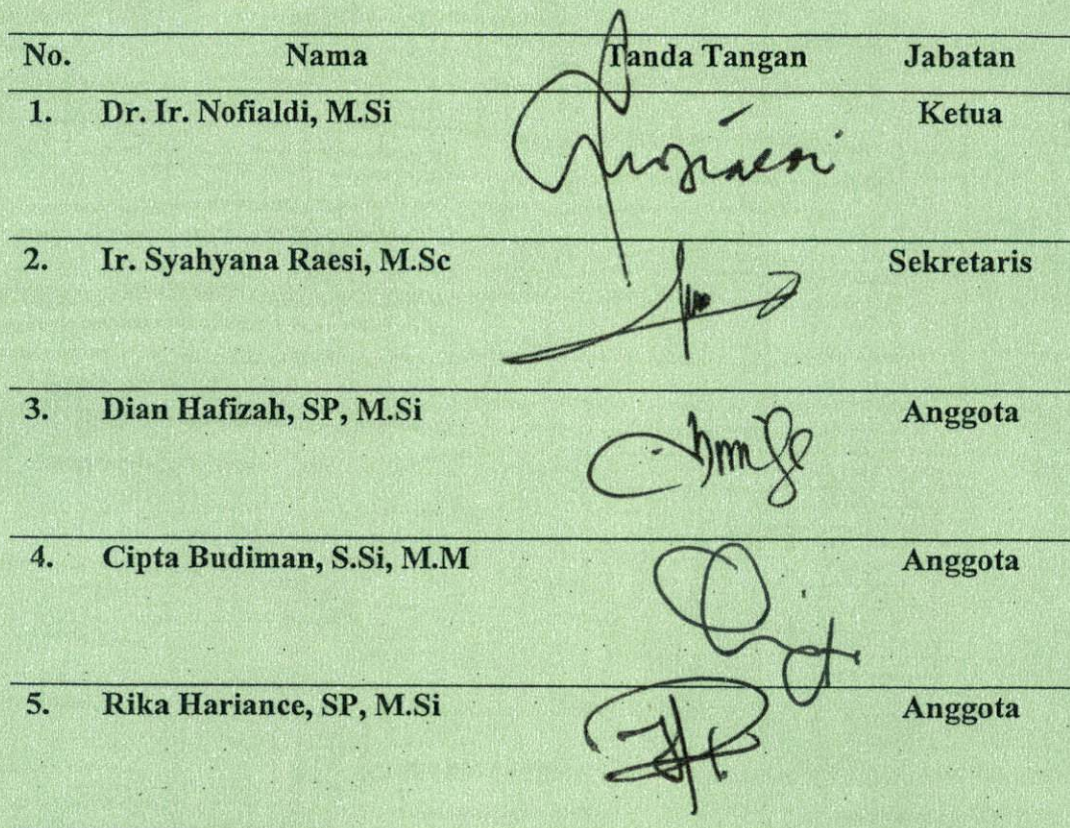 No. Nama Tanda Tangan Jabatan
1. Dr. Ir. Nofialdi, M.Si Ketua
2. Ir. Syahyana Raesi, M.Sc Sekretaris
3. Dian Hafizah, SP, M.Si Anggota
4. Cipta Budiman, S.Si, M.M Anggota
5. Rika Hariance, SP, M.Si Anggota